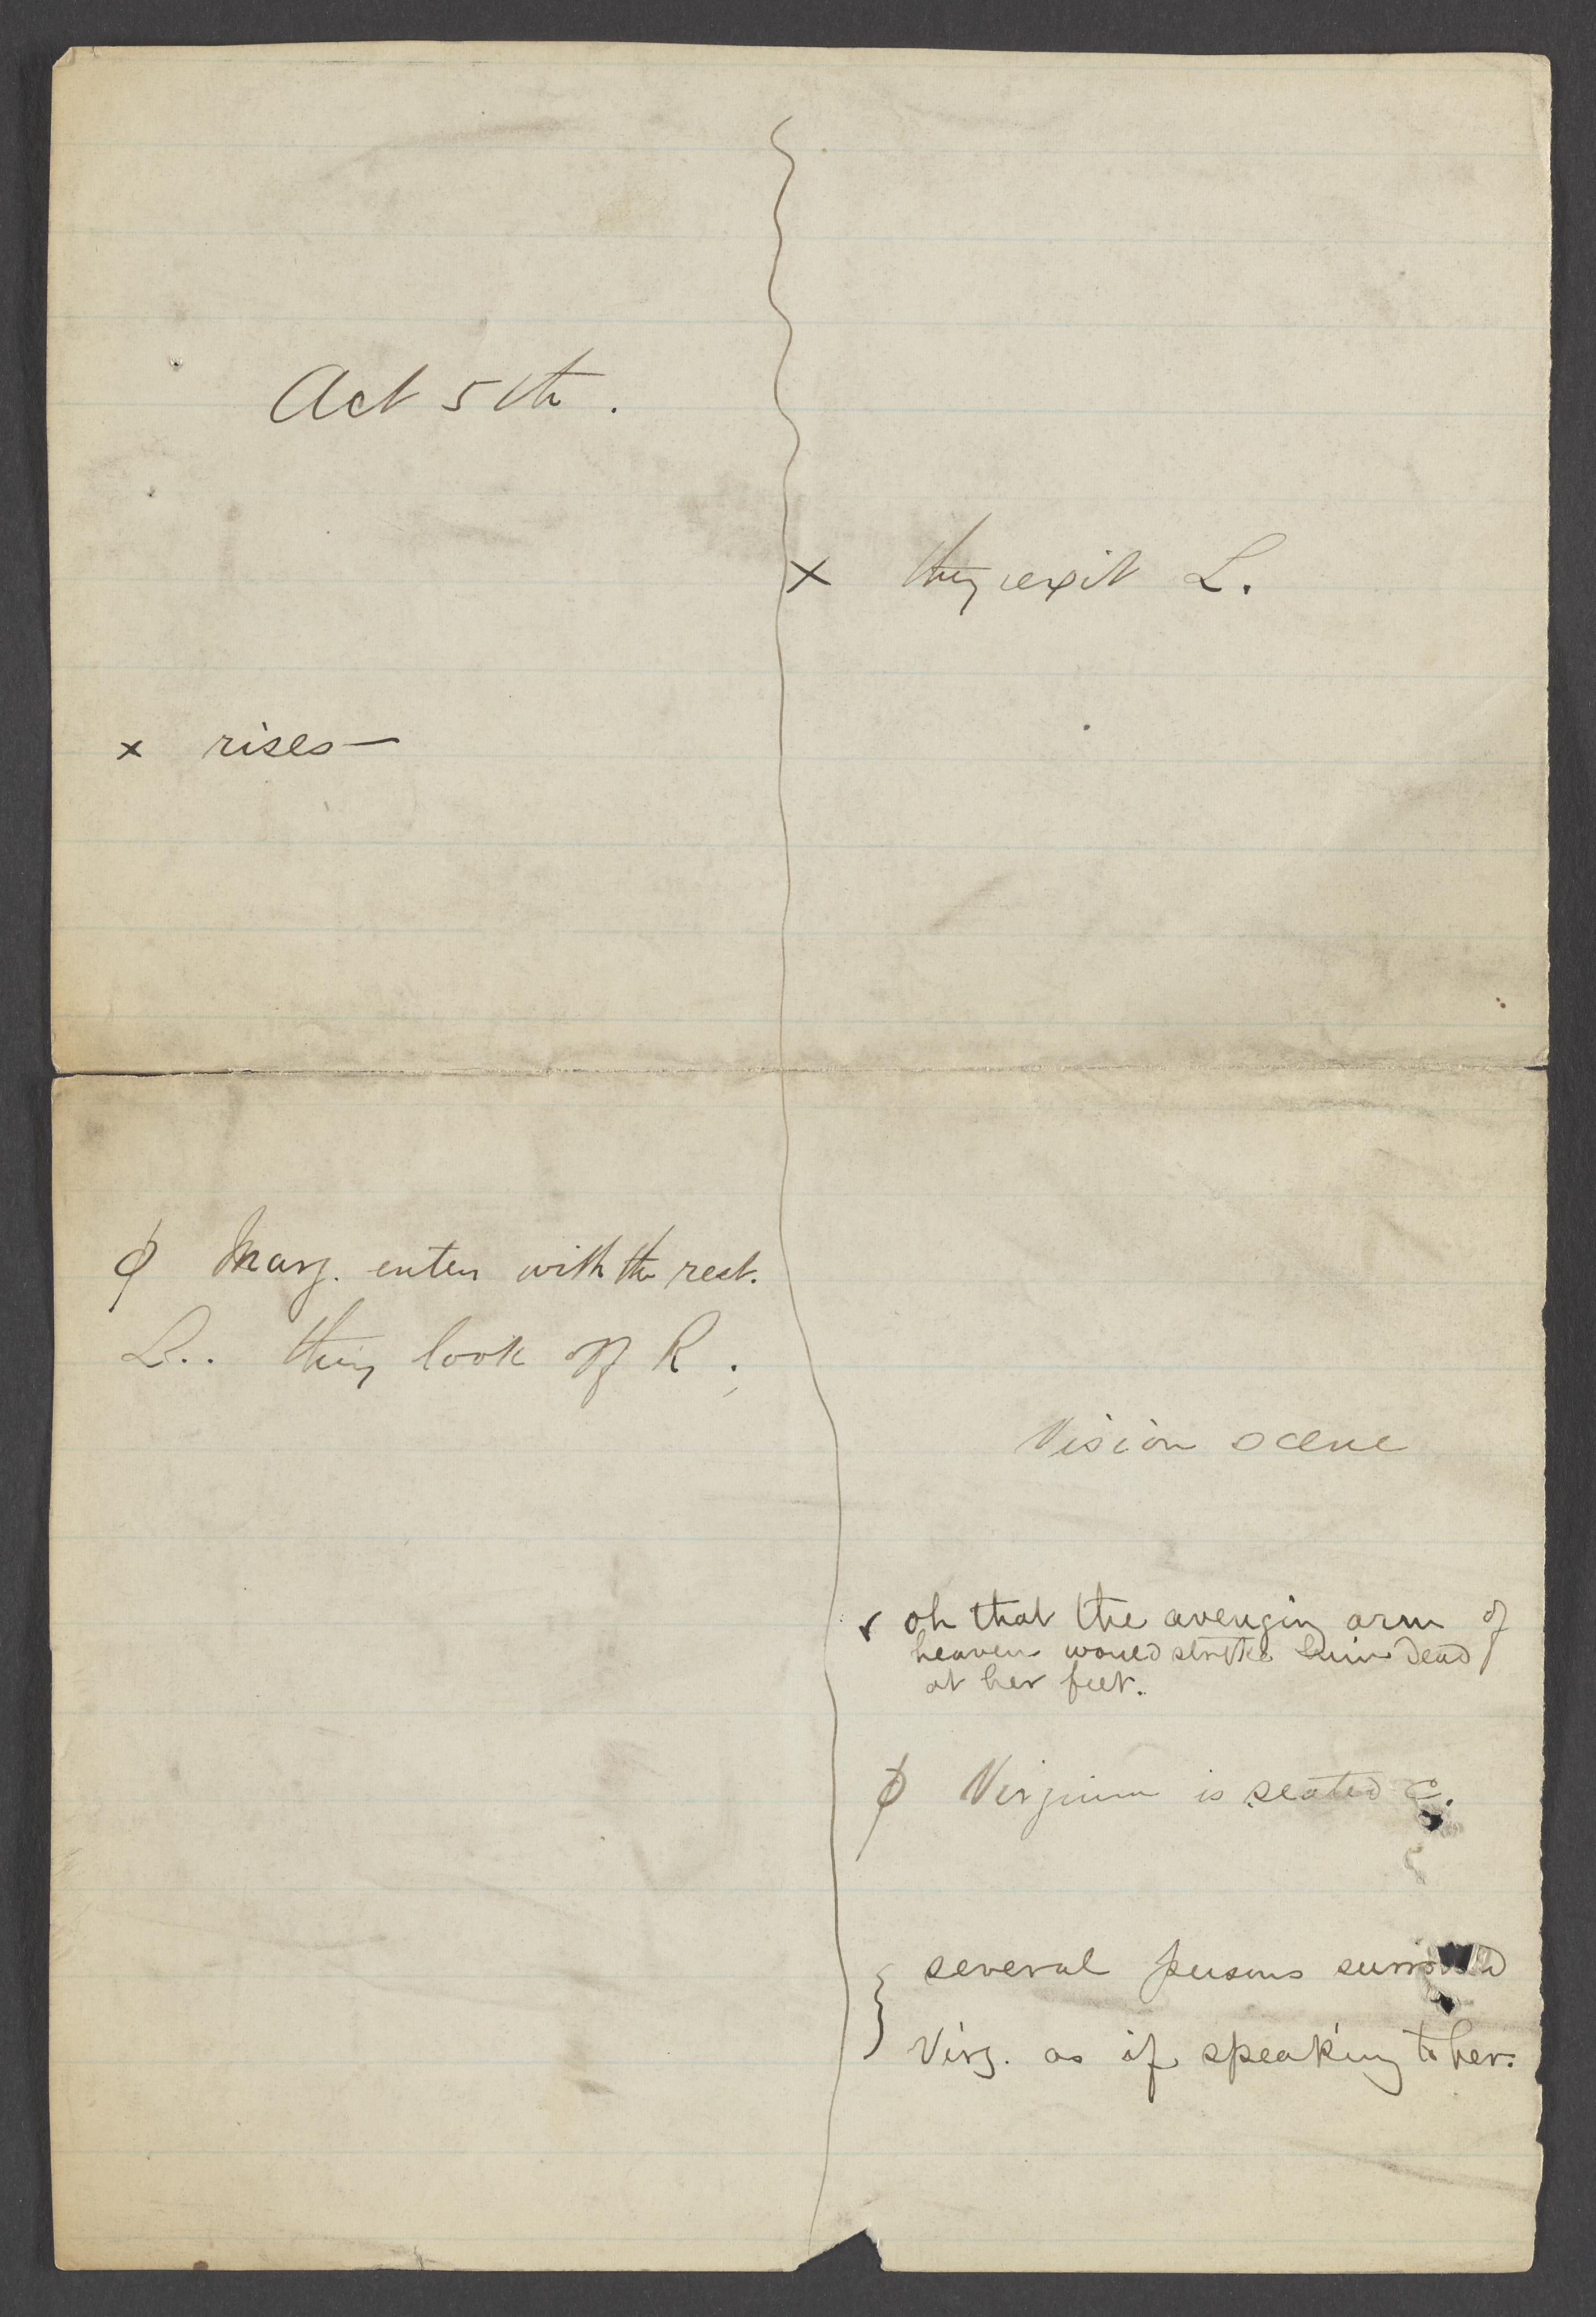 Act 5th.
x rises—
ϕ Marg. enters with the rest.
L.. they look off R.
x they exit L.
Vision scene
x oh that the avenging arm of
heaven would strike him dead
at her feet.
ϕ Virginia is seated C.
{ several persons surround
Virg. as if speaking to her.